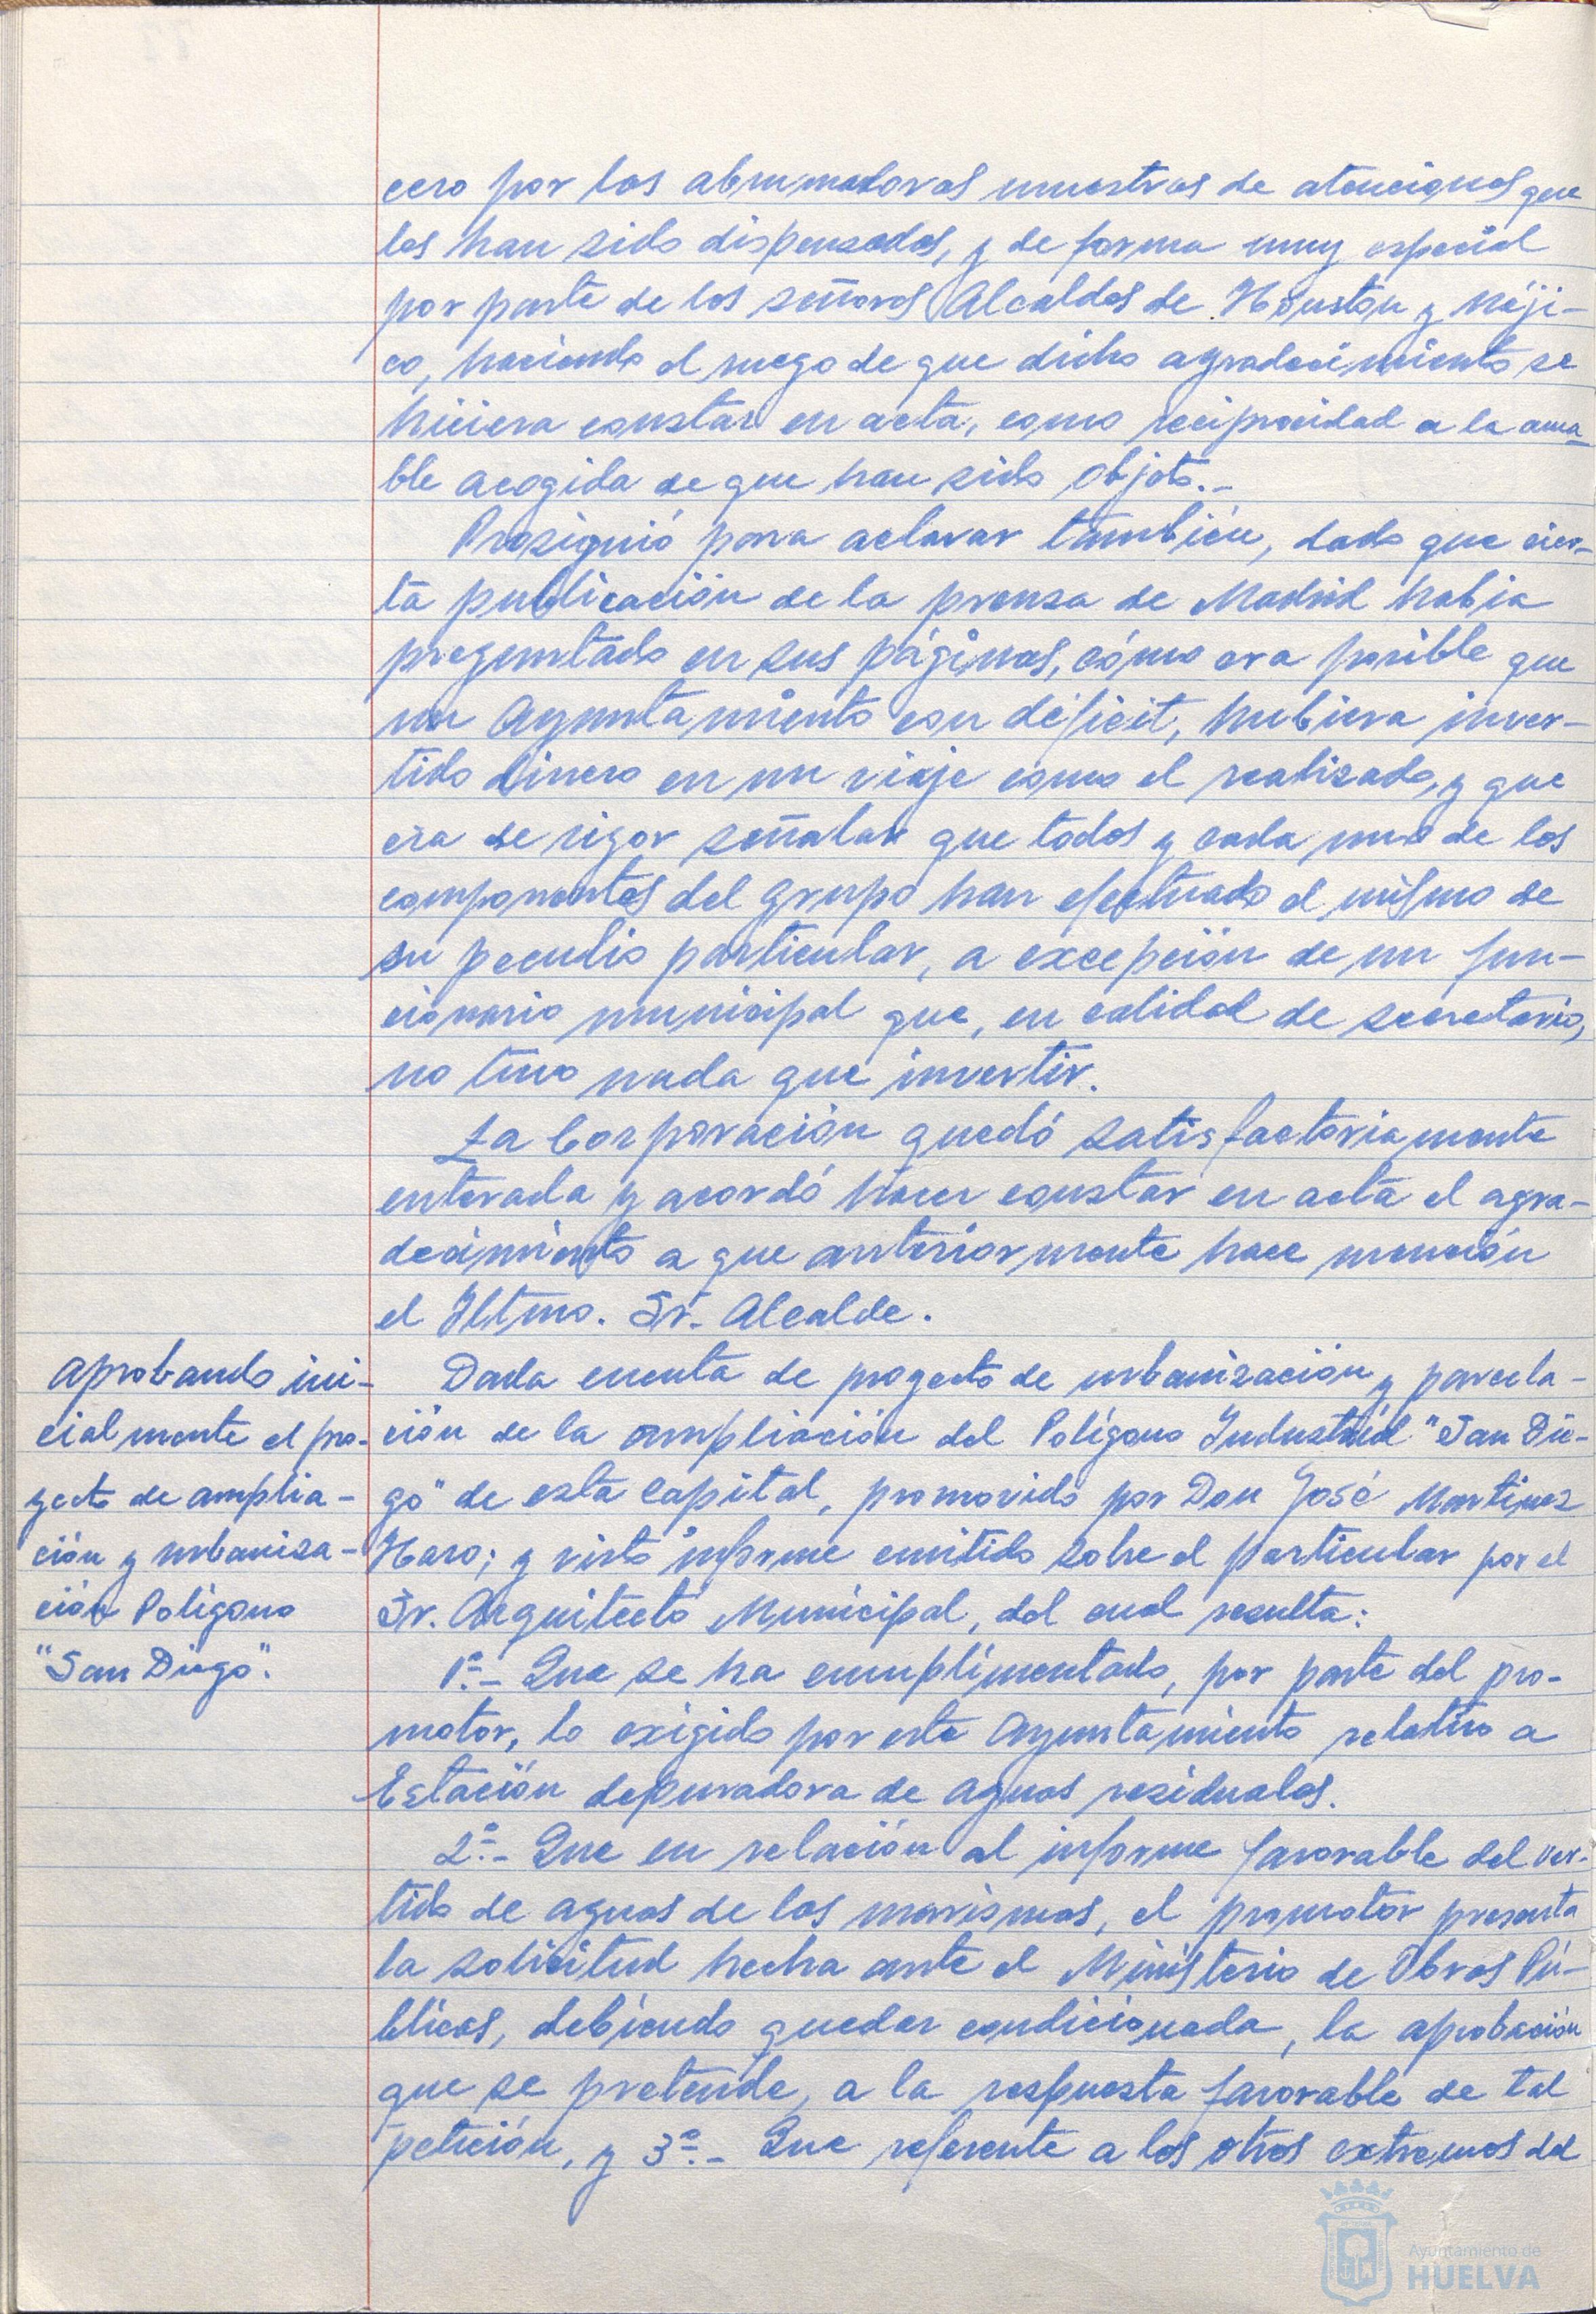 cero por las abrumadoras muestras de atenciones que
les han sido dispensadas, y de forma muy especial
por parte de los señores Alcaldes de Houston y Méji-
co, haciendo el ruego de que dicho agradecimiento se
hiciera constar en acta, como reciprocidad a la ama
ble acogida de que han sido objeto.-
Prosiguió para aclarar también, dado que cier-
ta publicación de la prensa de Madrid habia
preguntado en sus páginas, cómo era posible que
un Ayuntamiento con déficit, hubiera inver-
tido dinero en un viaje como el realizado, y que
era de rigor señalar que todos y cada uno de los
componentes del grupo han efectuado el mismo de
su peculio particular, a excepción de un fun-
cionario municipal que, en calidad de secretario,
no tuvo nada que invertir.
La Corporación quedó satisfactoriamente
enterada y acordó hacer constar en acta el agra-
decimiento a que anteriormente hace mención
el Iltmo. Sr. Alcalde.
Aprobando ini-
cialmente el pro-
yecto de amplia-
ción y urbaniza-
ción Poligono
"San Diego".
Dada cuenta de proyecto de urbanización y parcela-
ción de la ampliación del Polígono Industrial "San Die-
go" de esta Capital, promovido por Don José Martinez
Haro; y visto informe emitido sobre el particular por el
Sr. Arquitecto Municipal, del cual resulta:
1º.- Que se ha cumplimentado, por parte del pro-
motor, lo exigido por este Ayuntamiento relativo a
Estación depuradora de aguas residuales.
2º.- Que en relación al informe favorable del ver-
tido de aguas de las marismas, el promotor presenta
la solicitud hecha ante el Ministerio de Obras Pú-
blicas, debiendo quedar condicionada, la aprobación
que se pretende, a la respuesta favorable de tal
petición, y 3º.- Que referente a los otros extremos del
Ayuntamiento de
HUELVA